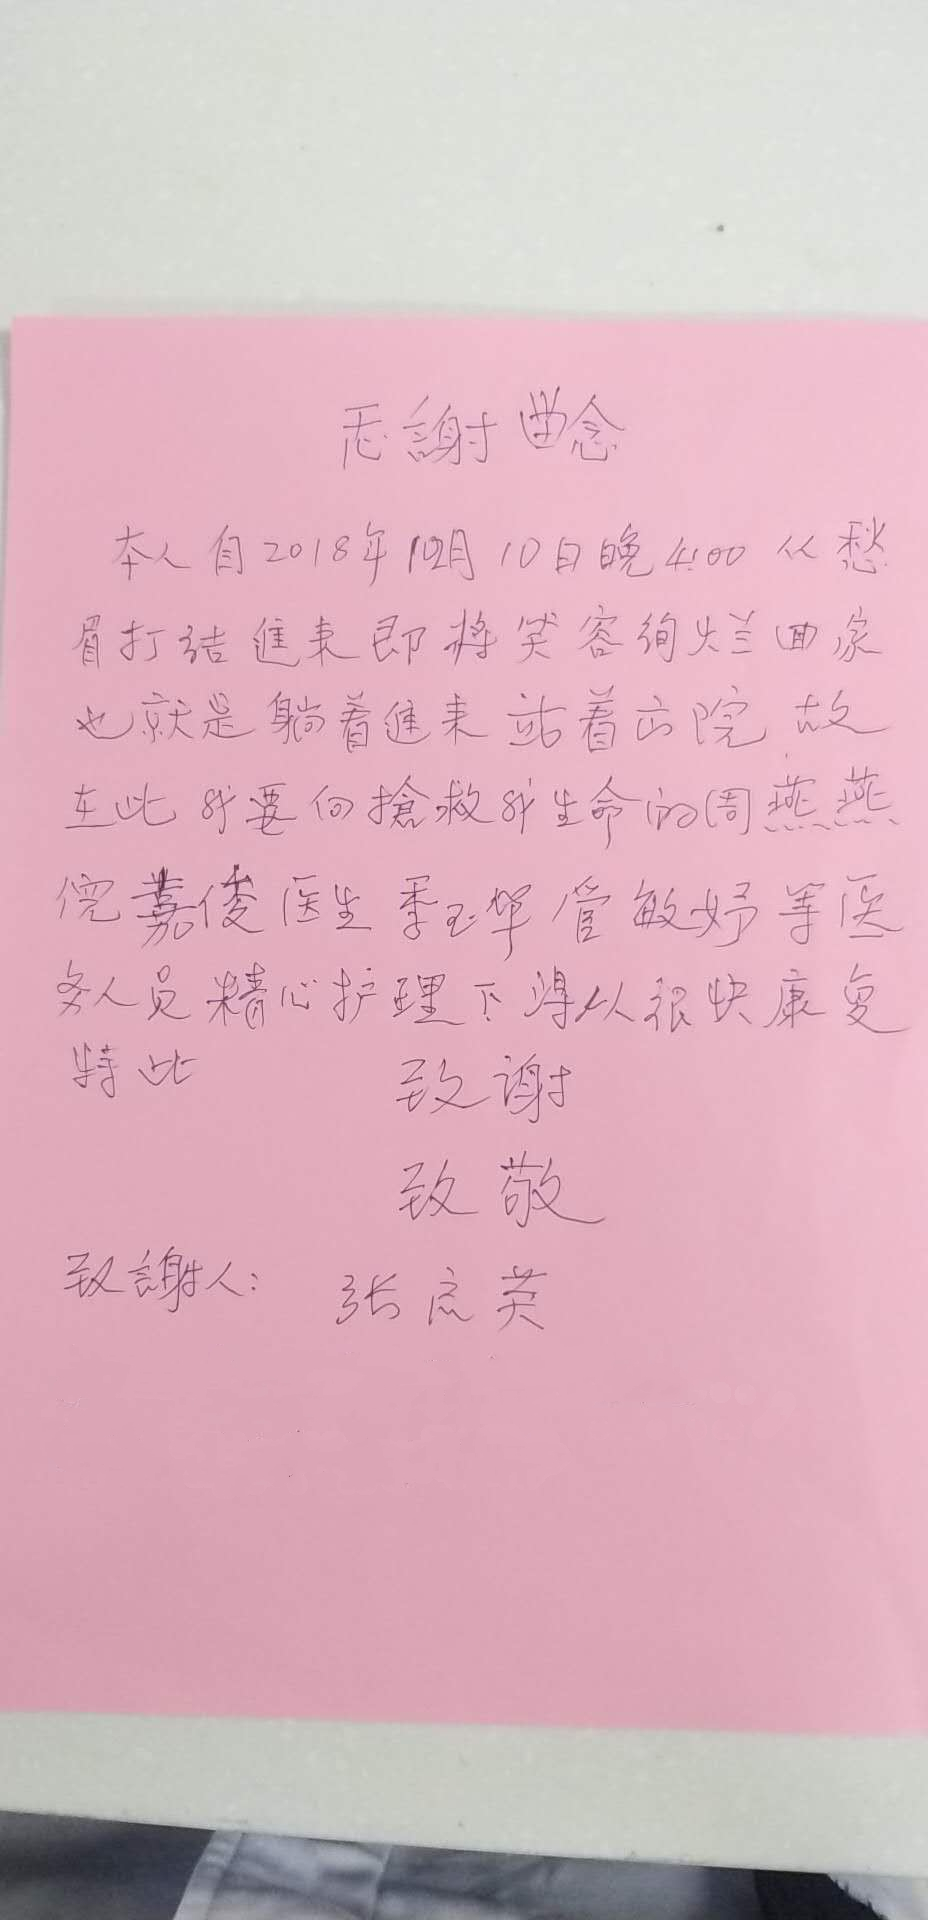 謝 念
本人自2018年12月10日晚4:00从愁
眉打结進来即将笑容绚烂回家
也就是躺着進来站着出院 故
在此我要向搶救我生命的周燕燕
倪嘉俊医生季玉华管敏妤等医
务人员精心护理下得以很快康复
特此 致謝
致敬
致謝人: 张 英